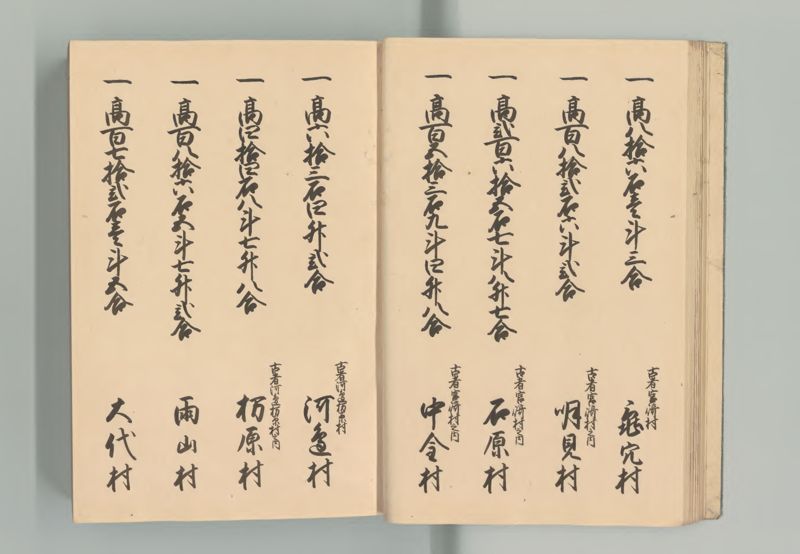 一 髙八拾六石壱斗三合
古者宮崎村
亀穴村
一 髙百八拾弐石六斗弐合
古者宮崎村之内
明見村
一 髙弐百六拾五石七斗八升七合
古者宮崎村之内
石原村
一 髙百五拾三石九斗四升八合
古者宮崎村之内
中金村
一 髙六拾三石四升弐合
古者河邊栃原村
河邊村
一 髙四拾四石八斗七升八合
古者河邊栃原村之内
栃原村
一 髙百八拾六石五斗七升弐合
雨山村
一 髙百七拾弐石壱斗五合
大代村